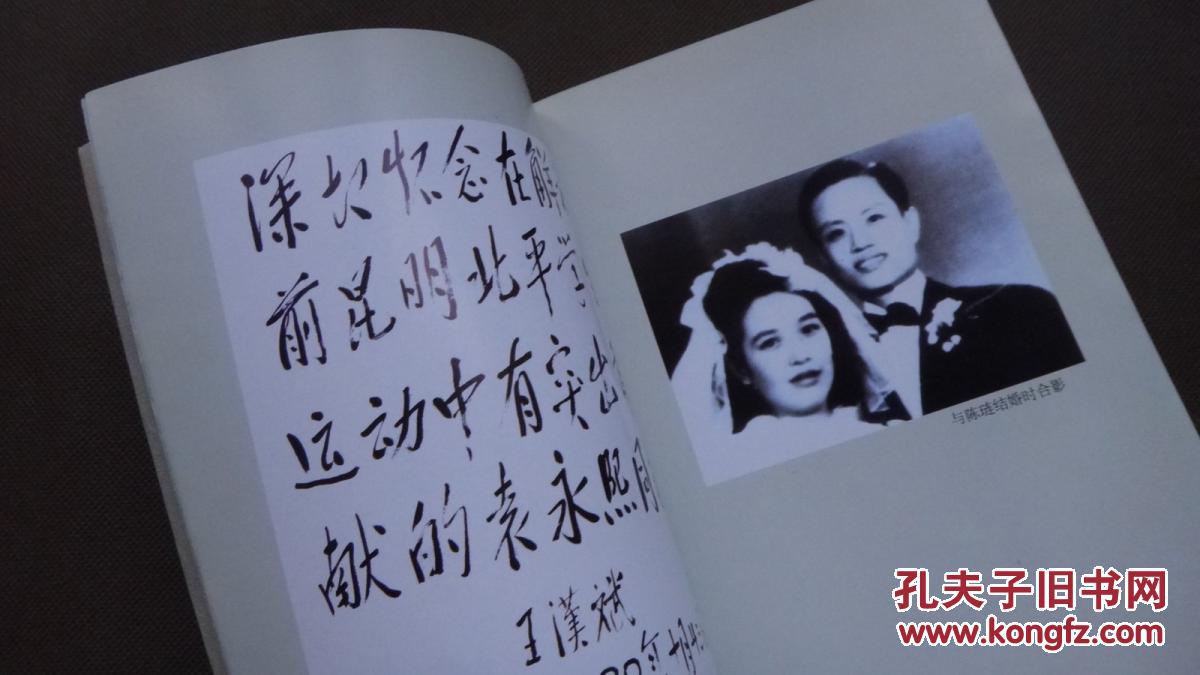 深切怀念在解
前昆明北平学
运动中有突出
献的袁永熙同
王漢斌
年七月
与陈琏结婚时合影
孔夫子旧书网
www.kongfz.com